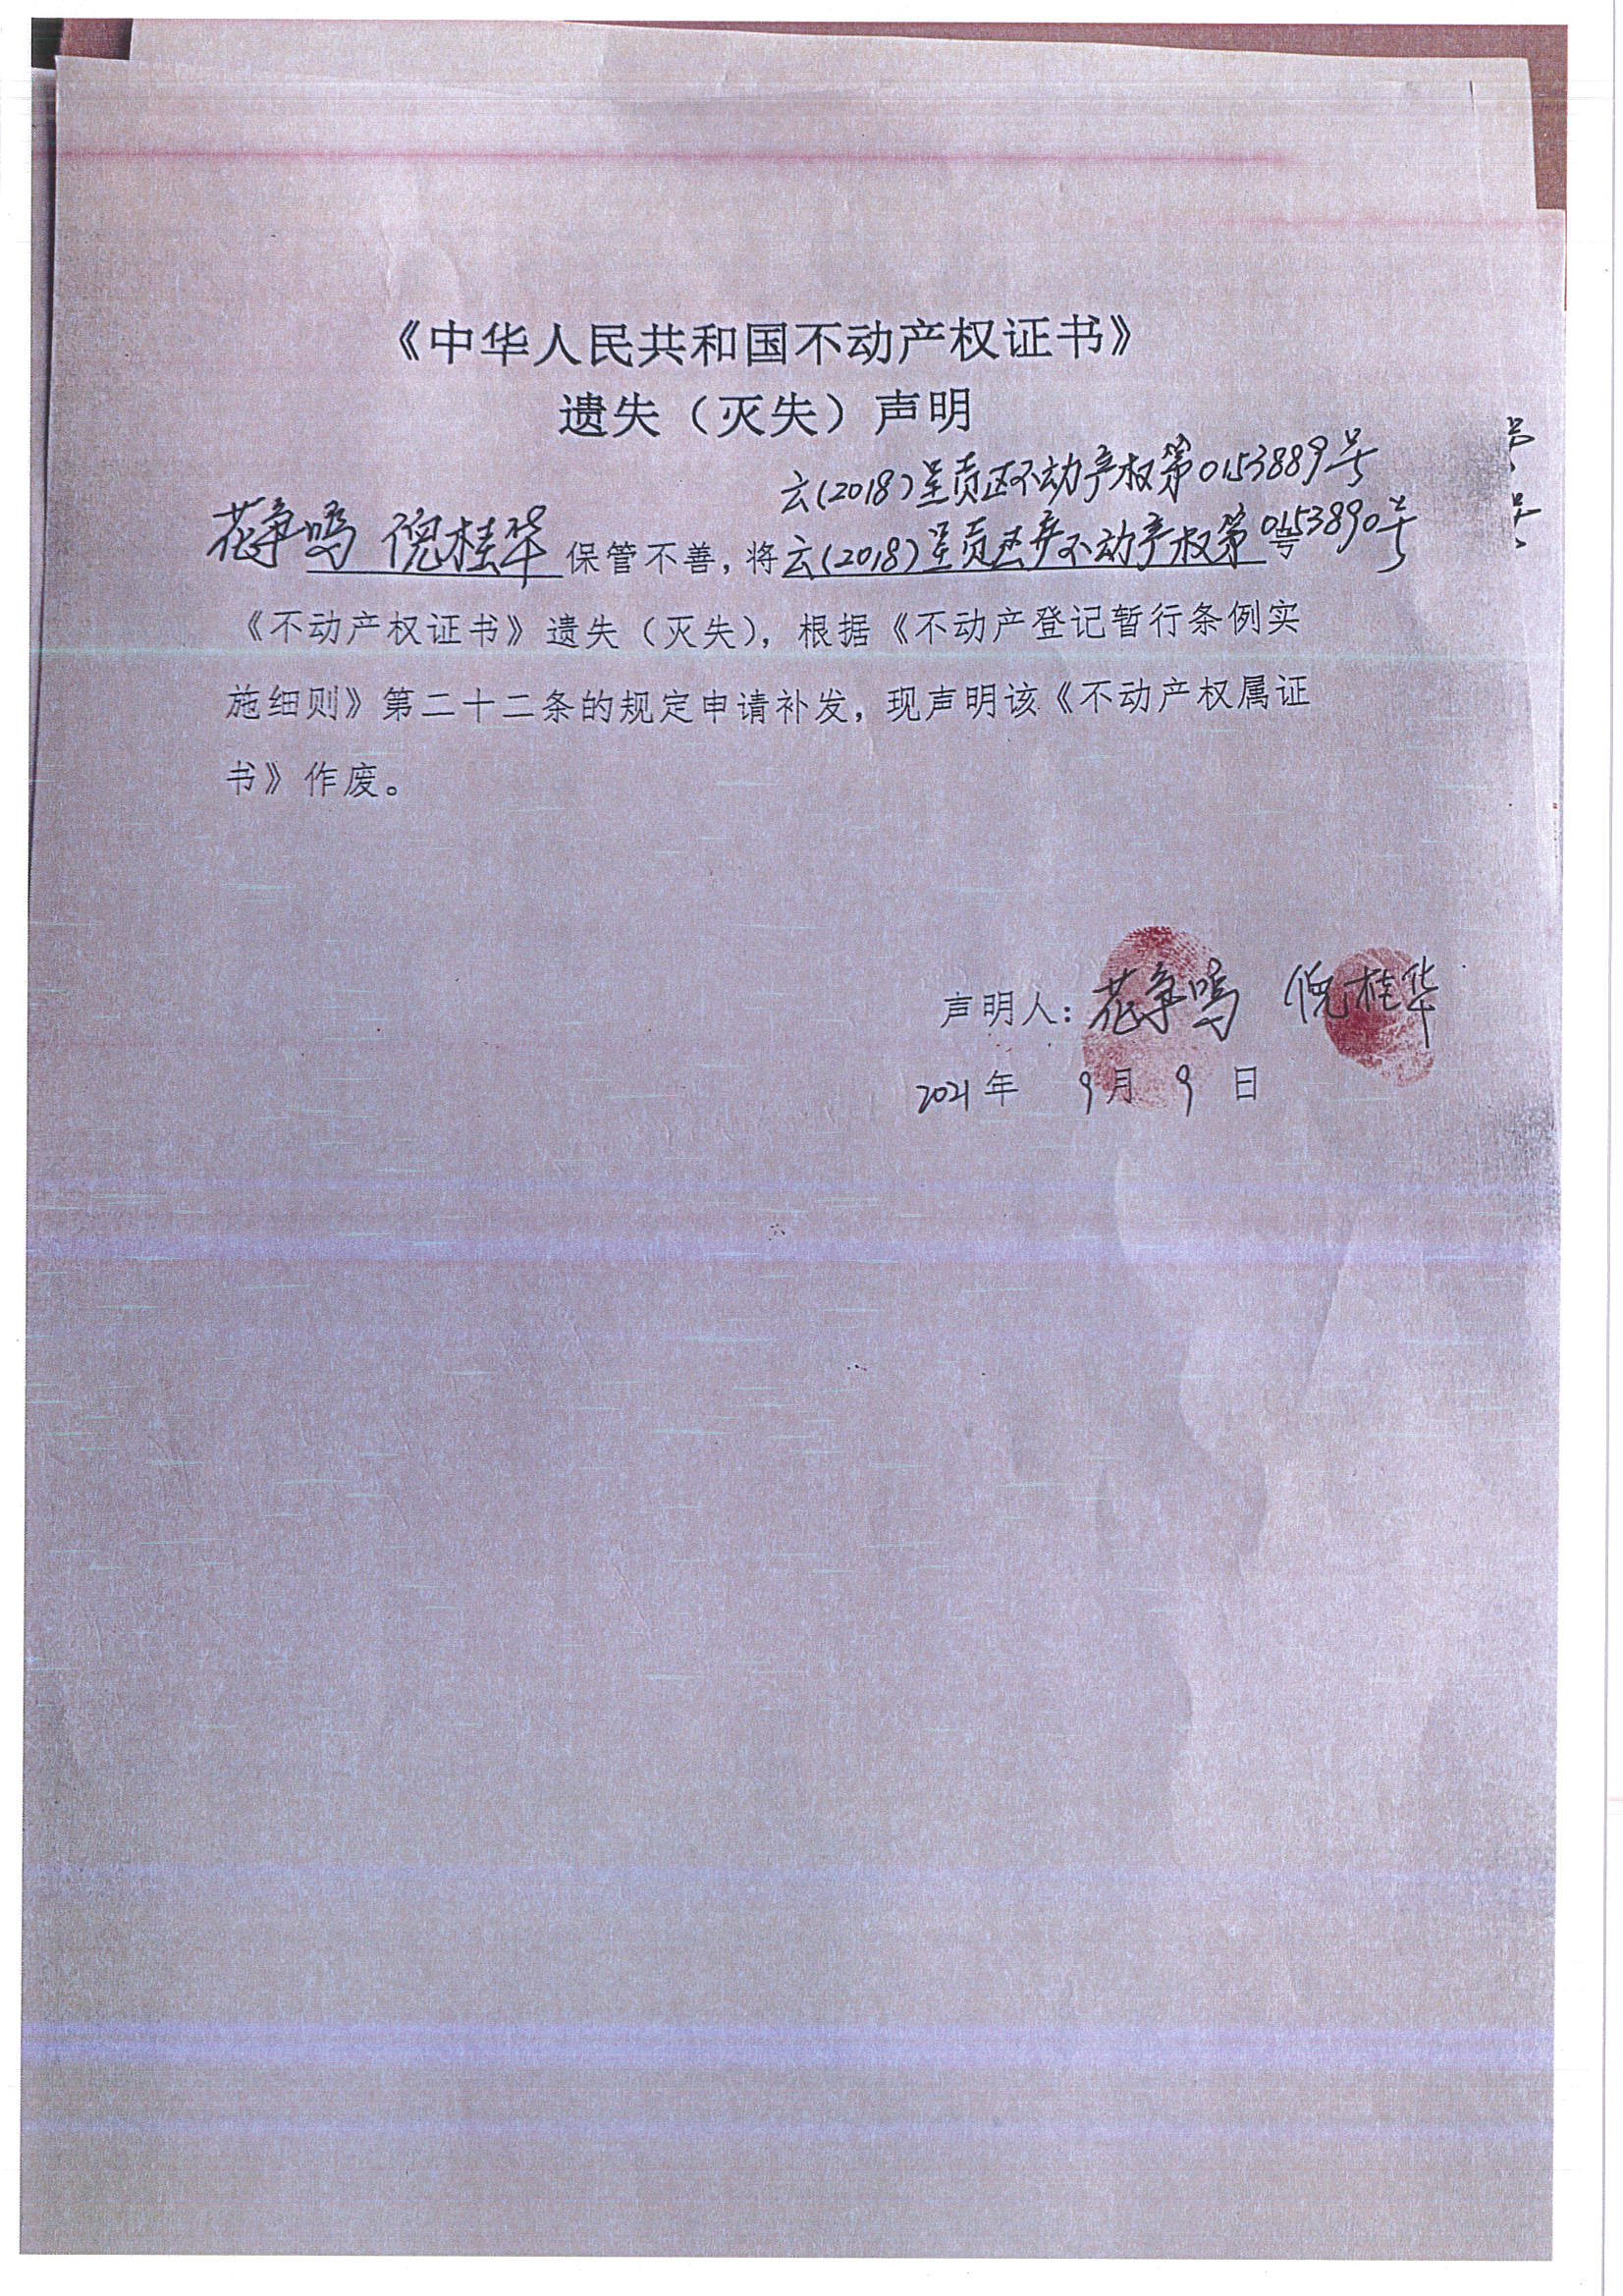 《中华人民共和国不动产权证书》
遗失（灭失）声明
云(2018)呈贡区不动产权第0153889号
花争鸣 倪桂华 保管不善，将云(2018)呈贡区不动产权第0153890号
《不动产权证书》遗失（灭失），根据《不动产登记暂行条例实
施细则》第二十二条的规定申请补发，现声明该《不动产权属证
书》作废。
声明人：花争鸣 倪桂华
2021年 9月 9 日